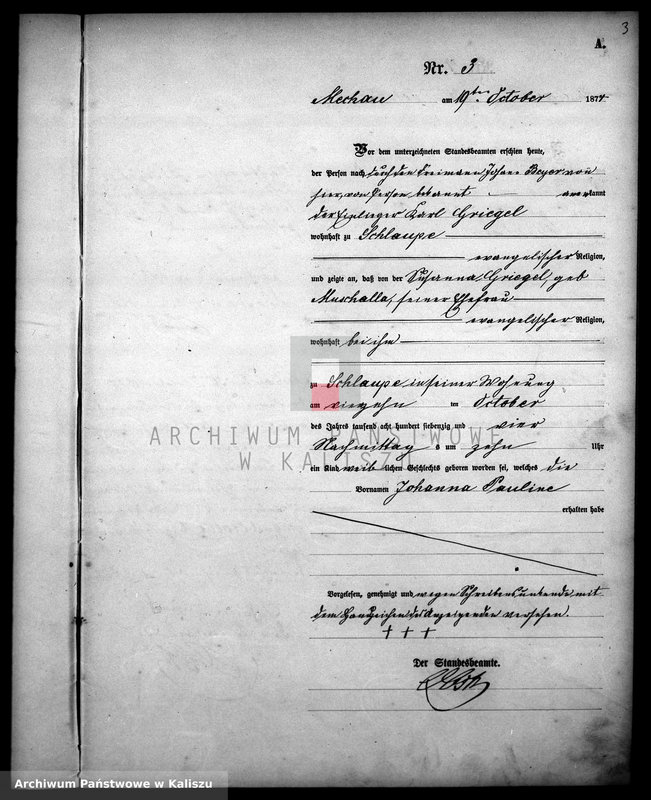 3
A.
Nr. 3
Mechau am 19ten October 1874
Vor dem unterzeichneten Standesbeamten erschien heute,
der Person nach durch den Freimann Johann Beyer von
hier, von Person bekannt anerkannt
der Einlieger Karl Griegel
wohnhaft zu Schlaupe
evangelischer Religion,
und zeigte an, daß von der Susanna Griegel, geb
Muschalla, seiner Ehefrau
evangelischer Religion,
wohnhaft bei ihm
zu Schlaupe in seiner Wohnung
am vierzehn ten October
des Jahres tausend acht hundert siebenzig und vier
Nachmittag s um zehn Uhr
ein Kind weib lichen Geschlechts geboren worden sei, welches die
Vornamen Johanna Pauline
erhalten habe
Vorgelesen, genehmigt und wegen Schreibensunkunde mit
dem Handzeichen des Anzeigenden versehen.
+ + +
Der Standesbeamte.
ARCHIWUM PAŃSTWOWE
W KALISZU
Archiwum Państwowe w Kaliszu